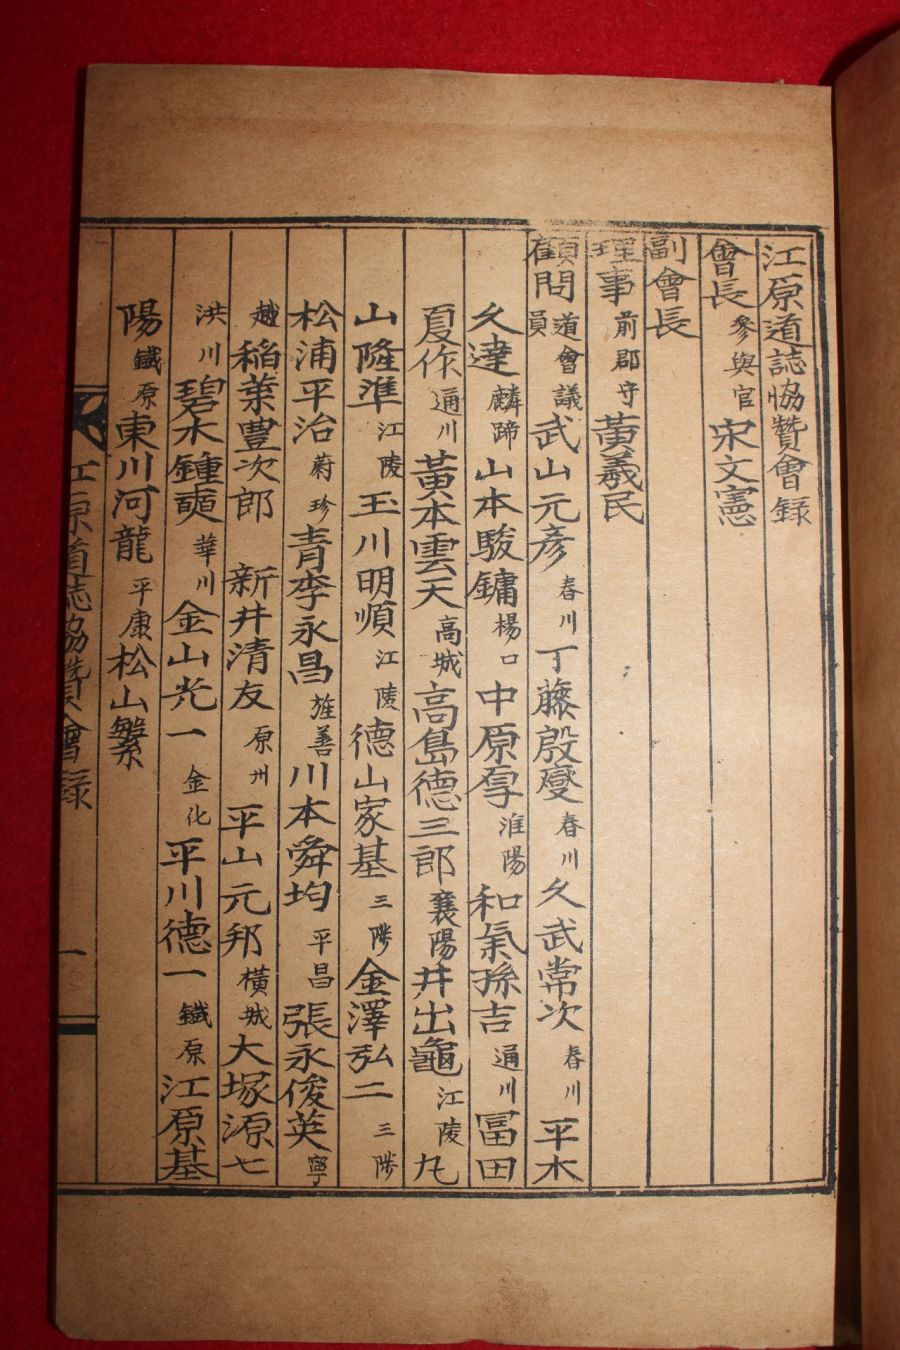 江原道誌協贊會錄
會長 參與官 宋文憲
副會長
理事 前郡守 黃羲民
顧問 道會議員 武山元彥 春川 丁藤殷燮 春川 久武常次 春川 平木
久達 麟蹄 山本駿鏞 楊口 中原厚 淮陽 和氣孫吉 通川 冨田
夏作 通川 黃本雲天 高城 高島德三郎 襄陽 井出龜 江陵 丸
山隆準 江陵 玉川明順 江陵 德山家基 三陟 金澤弘二 三陟
松浦平治 蔚珍 青李永昌 旌善 川本舜均 平昌 張永俊英 寧
越 稻葉豊次郎 新井清友 原州 平山元邦 橫城 大塚源七
洪川 碧木鍾奭 華川 金山光一 金化 平川德一 鐵原 江原基
陽 鐵原 東川河龍 平康 松山繁
江原道誌協贊會錄 一